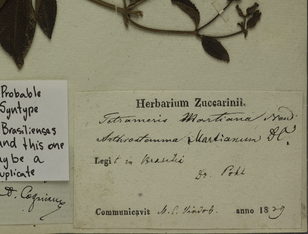 Probable
Syntype
Brasilienses
and this one
may be a
duplicate
Herbarium Zuccarinii.
Tetrameris Martiana Naud
Arthrostemma Martianum DC.
Legit in Brasilia
Dr. Pohl
Communicavit anno 1829